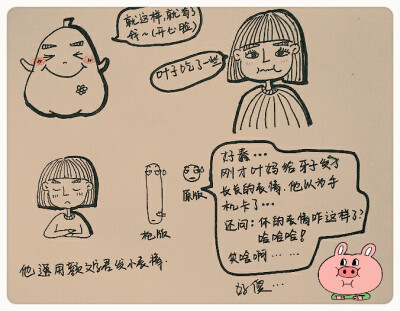 就这样,就有了
样~(开心脸)
叶子吃了一些
好蠢…
刚才叶妈给牙子发了
长长的表情,他以为手
机卡了…
还问:你的表情咋这样了?
哈哈哈!
笑啥啊… …
好傻…
原版
抱版
他还用
发小表情